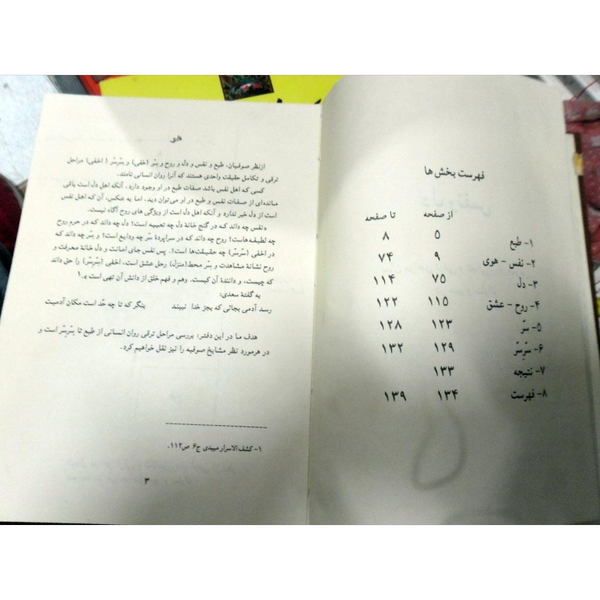 فهرست بخش ها
از صفحه تا صفحه
۱- طبع ۵ ۸
۲- نفس - هوی ۹ ۷۴
۳- دل ۷۵ ۱۱۴
۴- روح - عشق ۱۱۵ ۱۲۲
۵- سرّ ۱۲۳ ۱۲۸
۶- سرّسرّ ۱۲۹ ۱۳۲
۷- نتیجه ۱۳۳
۸- فهرست ۱۳۴ ۱۳۹
ازنظر صوفیان، طبع و نفس و دل و روح و سرّ (خفی) و سرّسرّ (اخفی) مراحل
ترقی و تکامل حقیقت واحدی هستند که آنرا روان انسانی نامند.
کسی که اهل نفس باشد صفات طبع در او وجود دارد، آنکه اهل دل است باقی
مانده‌ای از صفات نفس و طبع در او می‌توان دید، اما به عکس، آن که اهل نفس
است از دل خبر ندارد و آنکه اهل دل است از ویژگی های روح آگاه نیست.
«نفس چه داند که در گنج خانهٔ دل چه تعبیه است؟ دل چه داند که در حرم روح
چه لطیفه‌هاست؟ روح چه داند که در سراپردهٔ سرّ چه ودایع است؟ سرّ چه داند که
در اخفی (سرّسرّ) چه حقیقت‌ها است؟ پس نفس جای امانت و دل خانهٔ معرفت و
روح نشانهٔ مشاهدت و سرّ محط(منزل) رحل عشق است، اخفی (سرّسرّ) را حق داند
که چیست، و دانندهٔ آن کیست. وهم و فهم خلق از دانش آن تهی «.۱
به گفتهٔ سعدی:
رسد آدمی بجائی که بجز خدا نبیند بنگر که تا چه حدّ است مکان آدمیت
هدف ما در این دفتر، بررسی مراحل ترقی روان انسانی از طبع تا سرّسرّ است و
در هرمورد نظر مشایخ صوفیه را نیز نقل خواهیم کرد.
۱- کشف الاسرار میبدی ج۶ ص۱۱۲.
۳